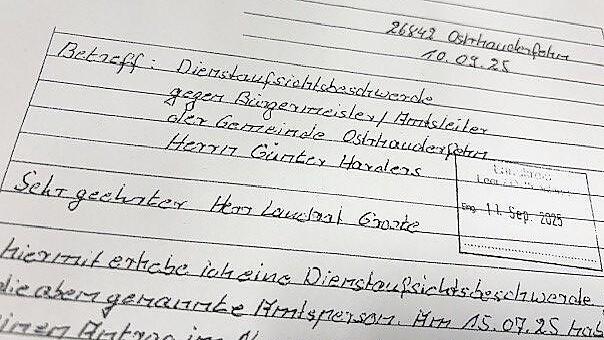 26842 Ostrhauderfehn
10.09.25
Betreff: Dienstaufsichtsbeschwerde
gegen Bürgermeister/Amtsleiter
der Gemeinde Ostrhauderfehn
Herrn Günter Harders
Sehr geehrter Herr Landrat Groote
Eing. 11. Sep. 2025
hiermit erhebe ich eine Dienstaufsichtsbeschwerde
die oben genannte Amtsperson. Am 15.07.25 hab
einen Antrag im